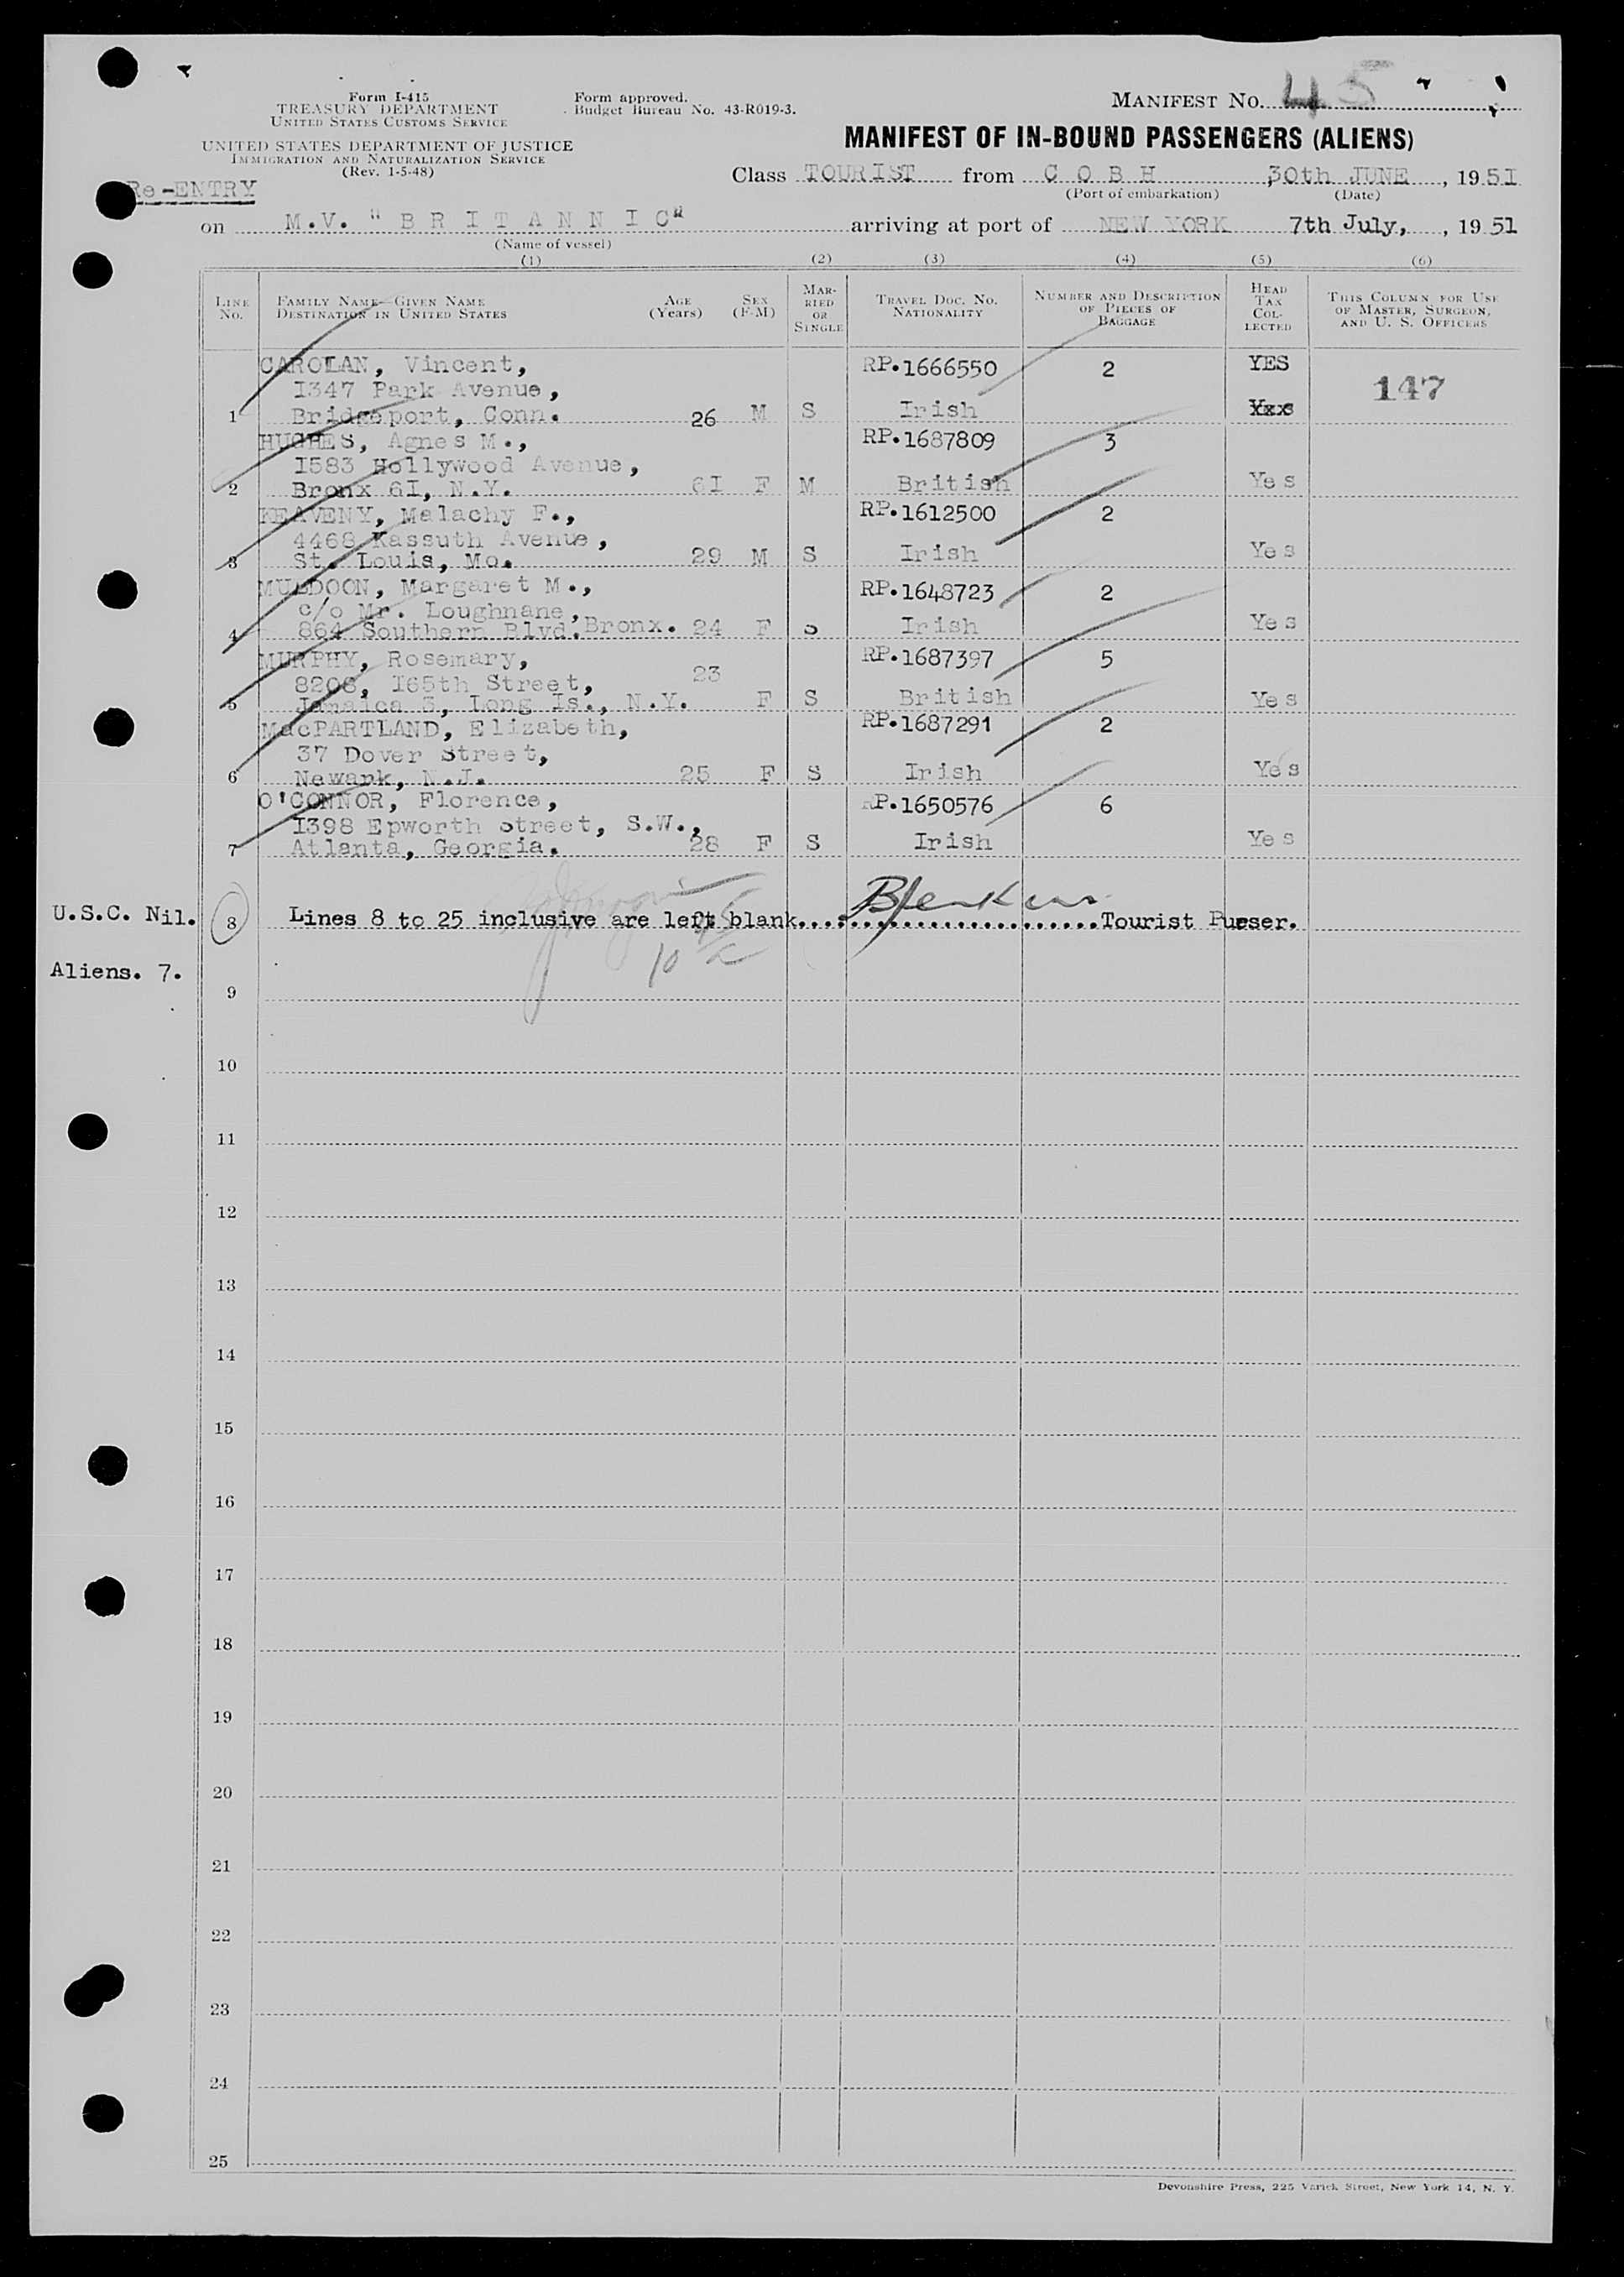 Form I-415
TREASURY DEPARTMENT
UNITED STATES CUSTOMS SERVICE
UNITED STATES DEPARTMENT OF JUSTICE
IMMIGRATION AND NATURALIZATION SERVICE
(Rev. 1-5-48)
Form approved.
Budget Bureau No. 43-R019-3.
MANIFEST No. 45
MANIFEST OF IN-BOUND PASSENGERS (ALIENS)
Re-ENTRY
Class TOURIST from C O B H 30th JUNE, 1951
(Port of embarkation) (Date)
on M.V. "B R I T A N N I C" arriving at port of NEW YORK 7th July, , 1951
(Name of vessel)
(1) (2) (3) (4) (5) (6)
LINE No. FAMILY NAME—GIVEN NAME DESTINATION IN UNITED STATES AGE (Years) SEX (F-M) MARRIED OR SINGLE TRAVEL DOC. NO. NATIONALITY NUMBER AND DESCRIPTION OF PIECES OF BAGGAGE HEAD TAX COLLECTED THIS COLUMN FOR USE OF MASTER, SURGEON, AND U. S. OFFICERS
CAROLAN, Vincent, RP.1666550 2 YES 147
1347 Park Avenue,
1 Bridgeport, Conn. 26 M S Irish
HUGHES, Agnes M., RP.1687809 3
1583 Hollywood Avenue,
2 Bronx 61, N.Y. 61 F M British Yes
KEAVENY, Malachy F., RP.1612500 2
4468 Kassuth Avenue,
3 St. Louis, Mo. 29 M S Irish Yes
MULDOON, Margaret M., RP.1648723 2
c/o Mr. Loughnane,
4 864 Southern Blvd. Bronx. 24 F S Irish Yes
MURPHY, Rosemary, RP.1687397 5
8208, 165th Street, 23
5 Jamaica 3, Long Is., N.Y. F S British Yes
MacPARTLAND, Elizabeth, RP.1687291 2
37 Dover Street,
6 Newark, N.J. 25 F S Irish Yes
O'CONNOR, Florence, RP.1650576 6
1398 Epworth Street, S.W.,
7 Atlanta, Georgia. 28 F S Irish Yes
U.S.C. Nil. 8 Lines 8 to 25 inclusive are left blank..........................Tourist Purser.
Aliens. 7.
9
10
11
12
13
14
15
16
17
18
19
20
21
22
23
24
25
Devonshire Press, 225 Varick Street, New York 14, N. Y.